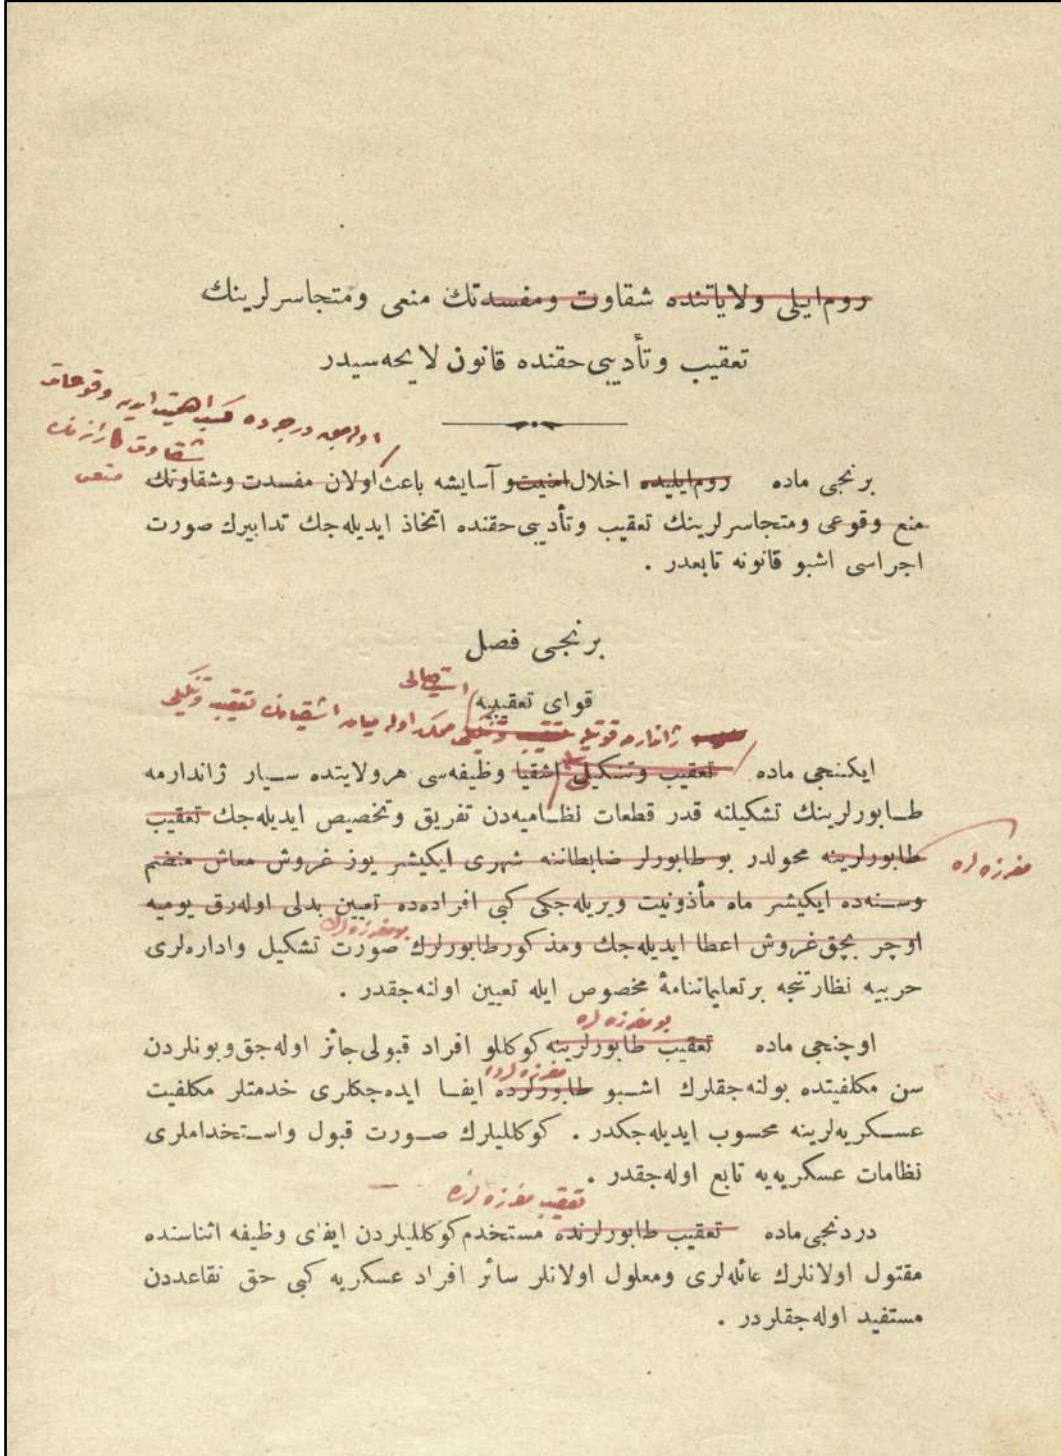 روم ايلى ولاياتنده شقاوت ومفسدتك منعى ومتجاسرلرينك
تعقيب وتأديبى حقنده قانون لايحه سيدر
اوله جق درجه ده كسب اهميت ايدن وقوعات
شقاوت
منعى
برنجى ماده روم ايليده اخلال امنيت و آسايشه باعث اولان مفسدت وشقاوتك
منع وقوعى ومتجاسرلرينك تعقيب وتأديبى حقنده اتخاذ ايديله جك تدابيرك صورت
اجراسى اشبو قانونه تابعدر .
برنجى فصل
قواى تعقيبيه
استيصالى
ژاندارمه قوتيله تعقيب وتنكيلى ممكن اوله ميان اشقيانك تعقيب وتنكيلى
ايكنجى ماده تعقيب وتنكيل اشقيا وظيفه سى هر ولايتده سيار ژاندارمه
طابورلرينك تشكيلنه قدر قطعات نظاميه دن تفريق وتخصيص ايديله جك تعقيب
مفرزه لره
طابورلرينه محولدر بو طابورلر ضابطاننه شهرى ايكيشر يوز غروش معاش منضم
وسنه ده ايكيشر ماه مأذونيت ويريله جكى كبى افراده ده تعيين بدلى اوله رق يوميه
بو مفرزه لرك
اوچر بچق غروش اعطا ايديله جك ومذكور طابورلرك صورت تشكيل واداره لرى
حربيه نظارتنجه بر تعليماتنامهٔ مخصوص ايله تعيين اولنه جقدر .
بو مفرزه لره
اوچنجى ماده تعقيب طابورلرينه كوكللو افراد قبولى جائز اوله جق وبونلردن
مفرزه لرده
سن مكلفيتده بولنه جقلرك اشبو طابورلرده ايفا ايده جكلرى خدمتلر مكلفيت
عسكريه لرينه محسوب ايديله جكدر . كوكلليلرك صورت قبول واستخداملرى
نظامات عسكريه يه تابع اوله جقدر .
تعقيب مفرزه لرنده
دردنجى ماده تعقيب طابورلرنده مستخدم كوكلليلردن ايفاى وظيفه اثناسنده
مقتول اولانلرك عائله لرى ومعلول اولانلر سائر افراد عسكريه كبى حق تقاعددن
مستفيد اوله جقلردر .